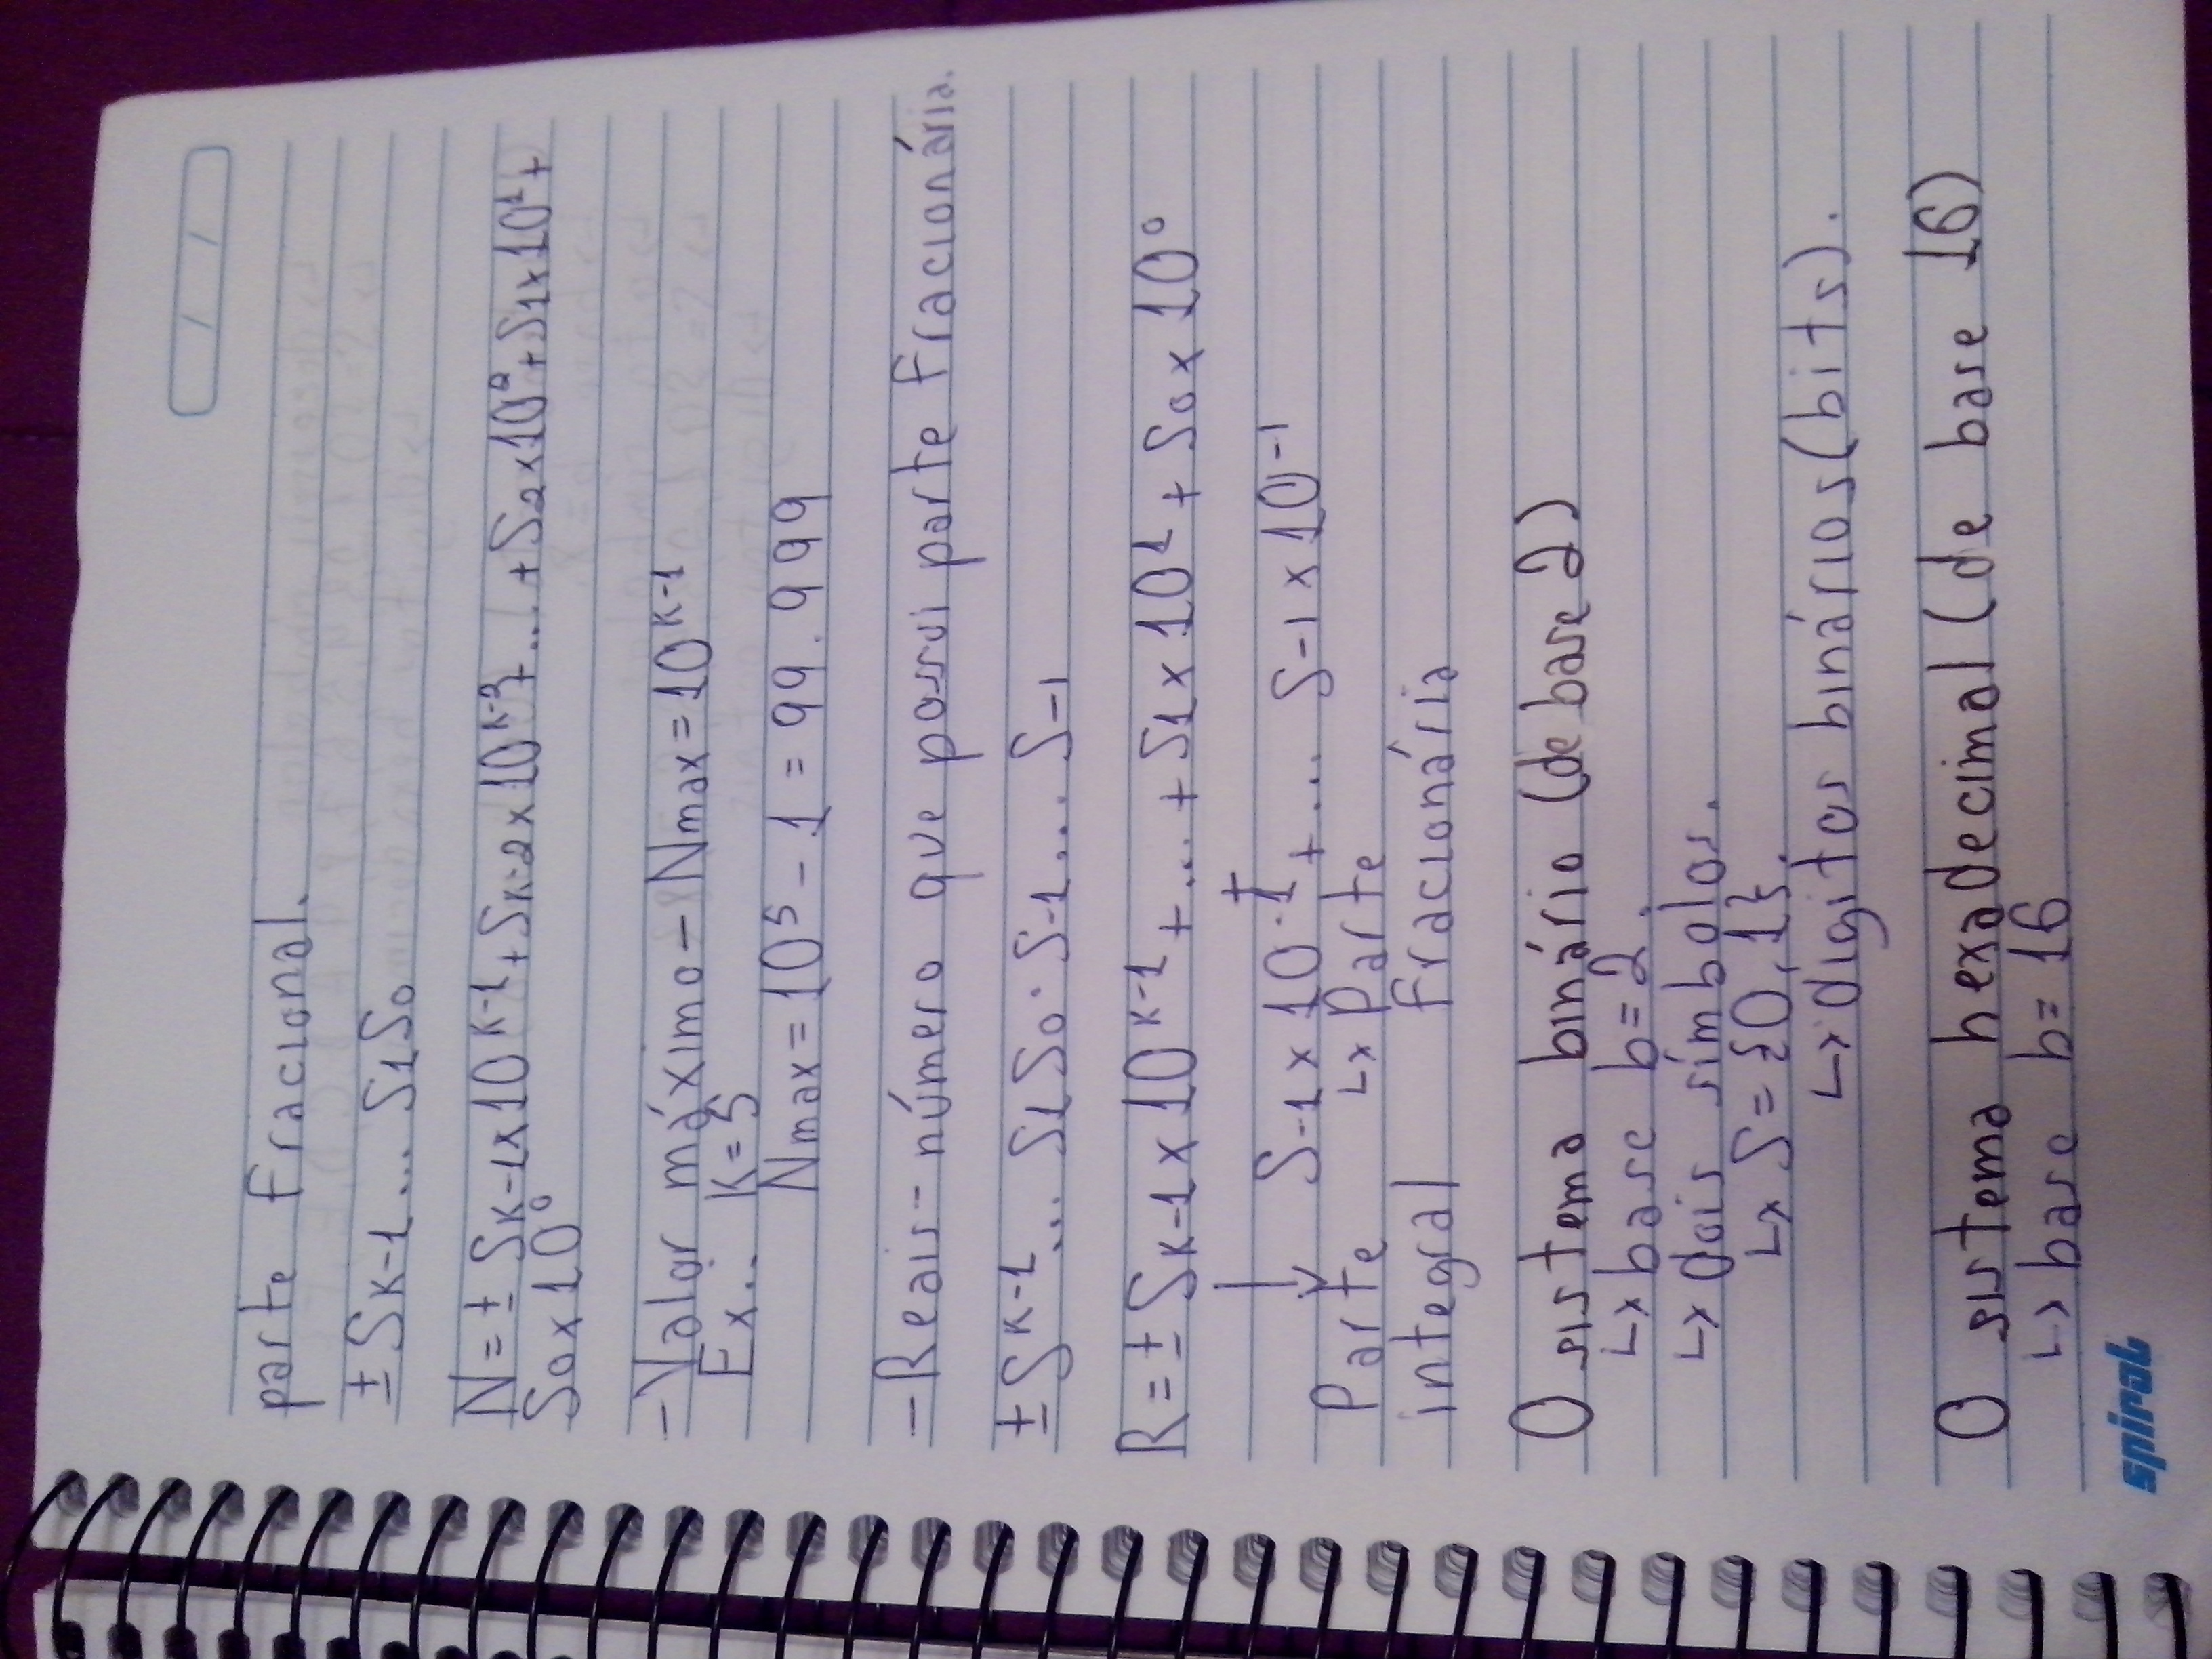 parte fracional.
± Sk-1... S1S0
N = ± Sk-1x10^k-1 + Sk-2x10^k-2 + ... + S2x10² + S1x10¹ +
S0x10⁰
- Valor máximo - Nmax = 10^k-1
Ex.: K = 5
Nmax = 10⁵ - 1 = 99.999
- Reais - número que possui parte fracionária.
± S^k-1... S1S0 · S-1... S-1
R = ± Sk-1 x 10^k-1 + ... + S1 x 10¹ + S0 x 10⁰
+
S-1 x 10^-1 + ... S-1 x 10^-1
Parte ↳ Parte
integral fracionária
O sistema binário (de base 2)
↳ base b = 2.
↳ dois símbolos.
↳ S = {0, 1}.
↳ dígitos binários (bits).
O sistema hexadecimal (de base 16)
↳ base b = 16
spiral